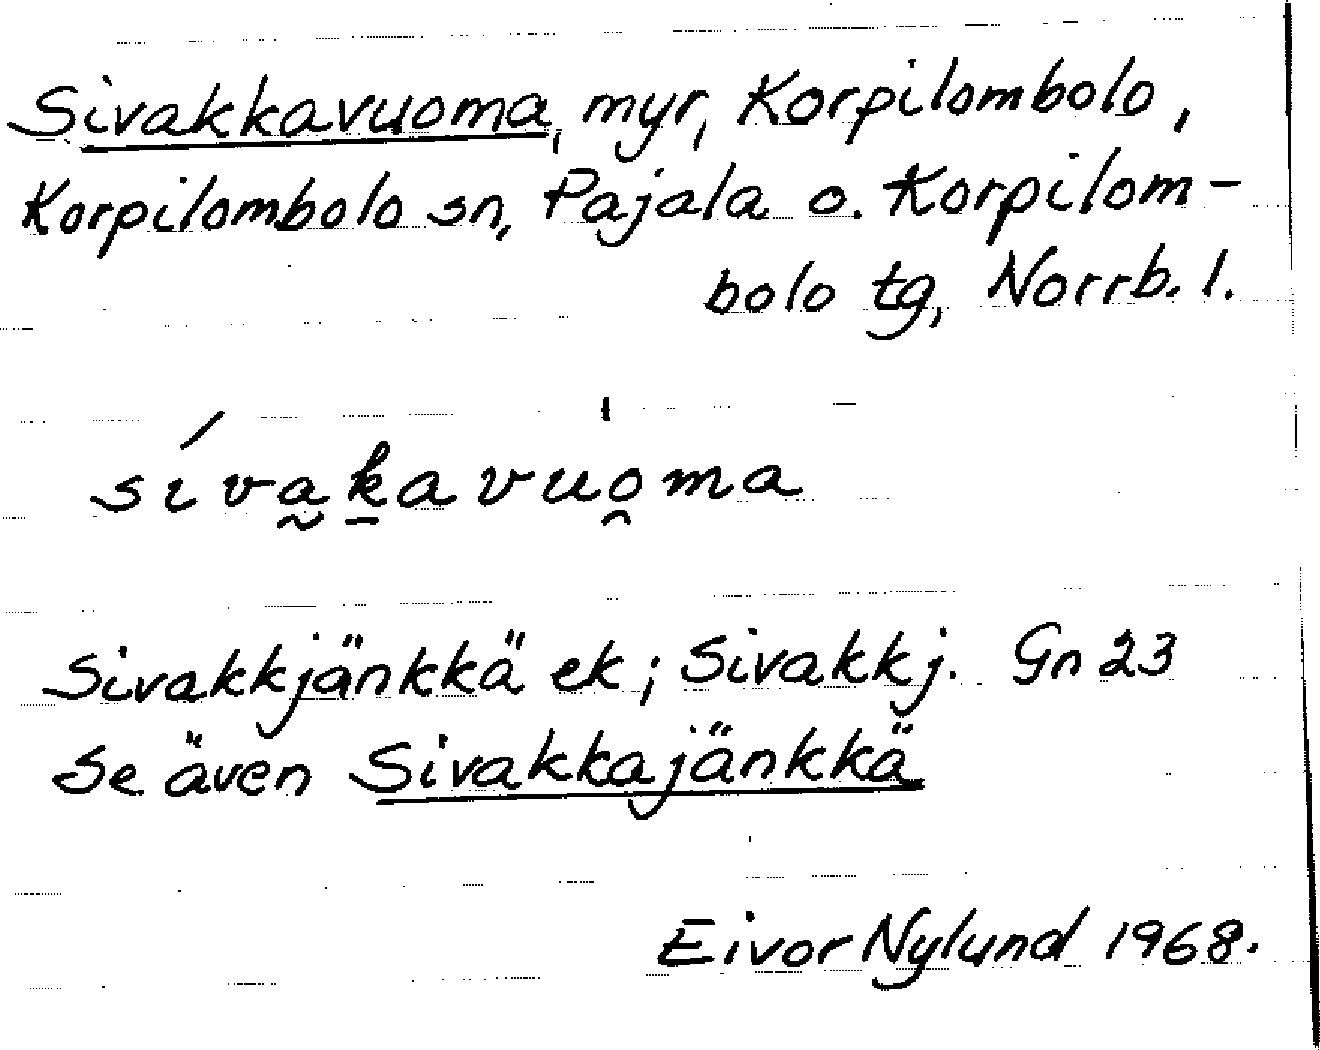 Sivakkavuoma, myr, Korpilombolo,
Korpilombolo sn, Pajala o. Korpilom-
bolo tg, Norrb. l.
síva̰ḵavuo̯ma
Sivakkjänkkä ek; Sivakkj. Gn 23
Se även Sivakkajänkkä
Eivor Nylund 1968.